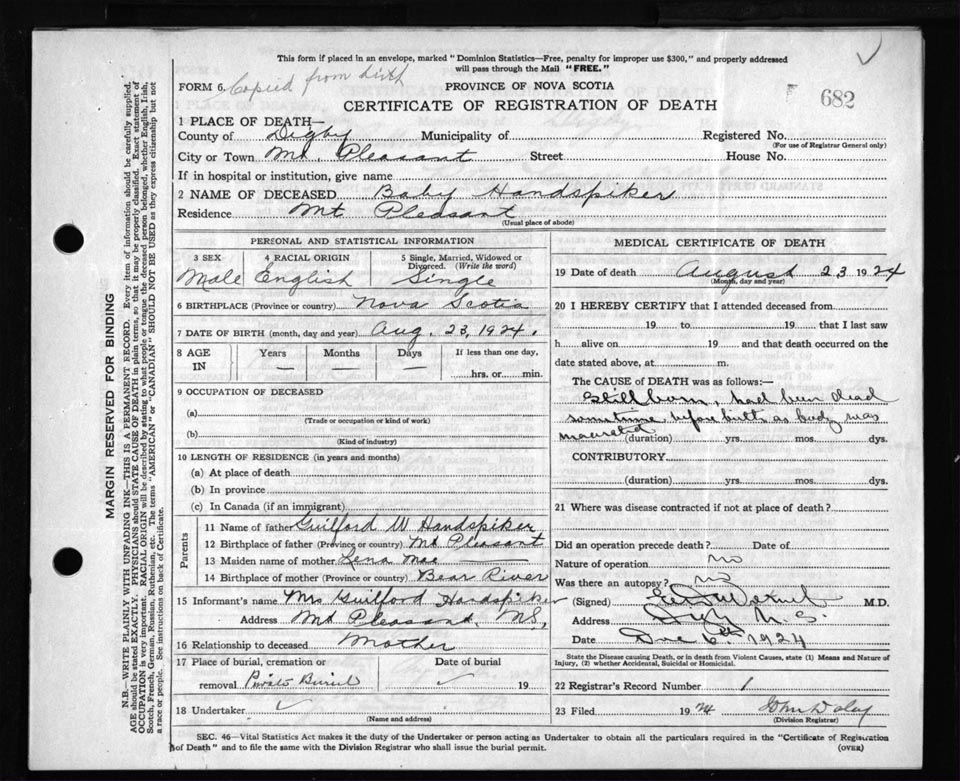 This form if placed in an envelope, marked "Dominion Statistics—Free, penalty for improper use $300," and properly addressed
will pass through the Mail "FREE."
FORM 6. Copied from birth
PROVINCE OF NOVA SCOTIA
682
CERTIFICATE OF REGISTRATION OF DEATH
1 PLACE OF DEATH—
County of Digby Municipality of Registered No.
(For use of Registrar General only)
City or Town Mt. Pleasant Street House No.
If in hospital or institution, give name
2 NAME OF DECEASED Baby Handspiker
Residence Mt Pleasant
(Usual place of abode)
PERSONAL AND STATISTICAL INFORMATION
3 SEX 4 RACIAL ORIGIN 5 Single, Married, Widowed or
Divorced. (Write the word)
Male English Single
6 BIRTHPLACE (Province or country) Nova Scotia
7 DATE OF BIRTH (month, day and year) Aug. 23, 1924.
8 AGE Years Months Days If less than one day,
IN — — — hrs. or min.
9 OCCUPATION OF DECEASED
(a)
(Trade or occupation or kind of work)
(b)
(Kind of industry)
10 LENGTH OF RESIDENCE (in years and months)
(a) At place of death
(b) In province
(c) In Canada (if an immigrant)
Parents
11 Name of father Guilford W Handspiker
12 Birthplace of father (Province or country) Mt Pleasant
13 Maiden name of mother Lena Mae —
14 Birthplace of mother (Province or country) Bear River
15 Informant's name Mrs Guilford Handspiker
Address Mt Pleasant, N.S.,
16 Relationship to deceased Mother
17 Place of burial, cremation or Date of burial
removal Private Burial ✓ 19
18 Undertaker ✓
(Name and address)
MEDICAL CERTIFICATE OF DEATH
19 Date of death August 23 1924
(Month, day and year)
20 I HEREBY CERTIFY that I attended deceased from
19 to 19 that I last saw
h alive on 19 and that death occurred on the
date stated above, at m.
The CAUSE OF DEATH was as follows:—
Still born, had been dead
sometime before birth as body was
(duration) yrs. mos. dys.
CONTRIBUTORY
(duration) yrs. mos. dys.
21 Where was disease contracted if not at place of death?
Did an operation precede death? Date of
Nature of operation no
Was there an autopsy? no
(Signed) M.D.
Address Digby N.S.
Date Dec 6th 1924
State the Disease causing Death, or in death from Violent Causes, state (1) Means and Nature of
Injury, (2) whether Accidental, Suicidal or Homicidal.
22 Registrar's Record Number 1
23 Filed 1924 John Daley
(Division Registrar)
SEC. 46—Vital Statistics Act makes it the duty of the Undertaker or person acting as Undertaker to obtain all the particulars required in the "Certificate of Registration
of Death" and to file the same with the Division Registrar who shall issue the burial permit. (OVER)
MARGIN RESERVED FOR BINDING
N.B.—WRITE PLAINLY WITH UNFADING INK—THIS IS A PERMANENT RECORD. Every item of information should be carefully supplied.
AGE should be stated EXACTLY. PHYSICIANS should STATE CAUSE OF DEATH in plain terms, so that it may be properly classified. Exact statement of
OCCUPATION is very important. RACIAL ORIGIN will be described by stating to what people or tongue the deceased person belonged, whether English, Irish,
Scotch, French, German, Russian, Ruthenian, etc. The terms "AMERICAN" or "CANADIAN" SHOULD NOT BE USED as they express citizenship but not
a race or people. See instructions on back of Certificate.